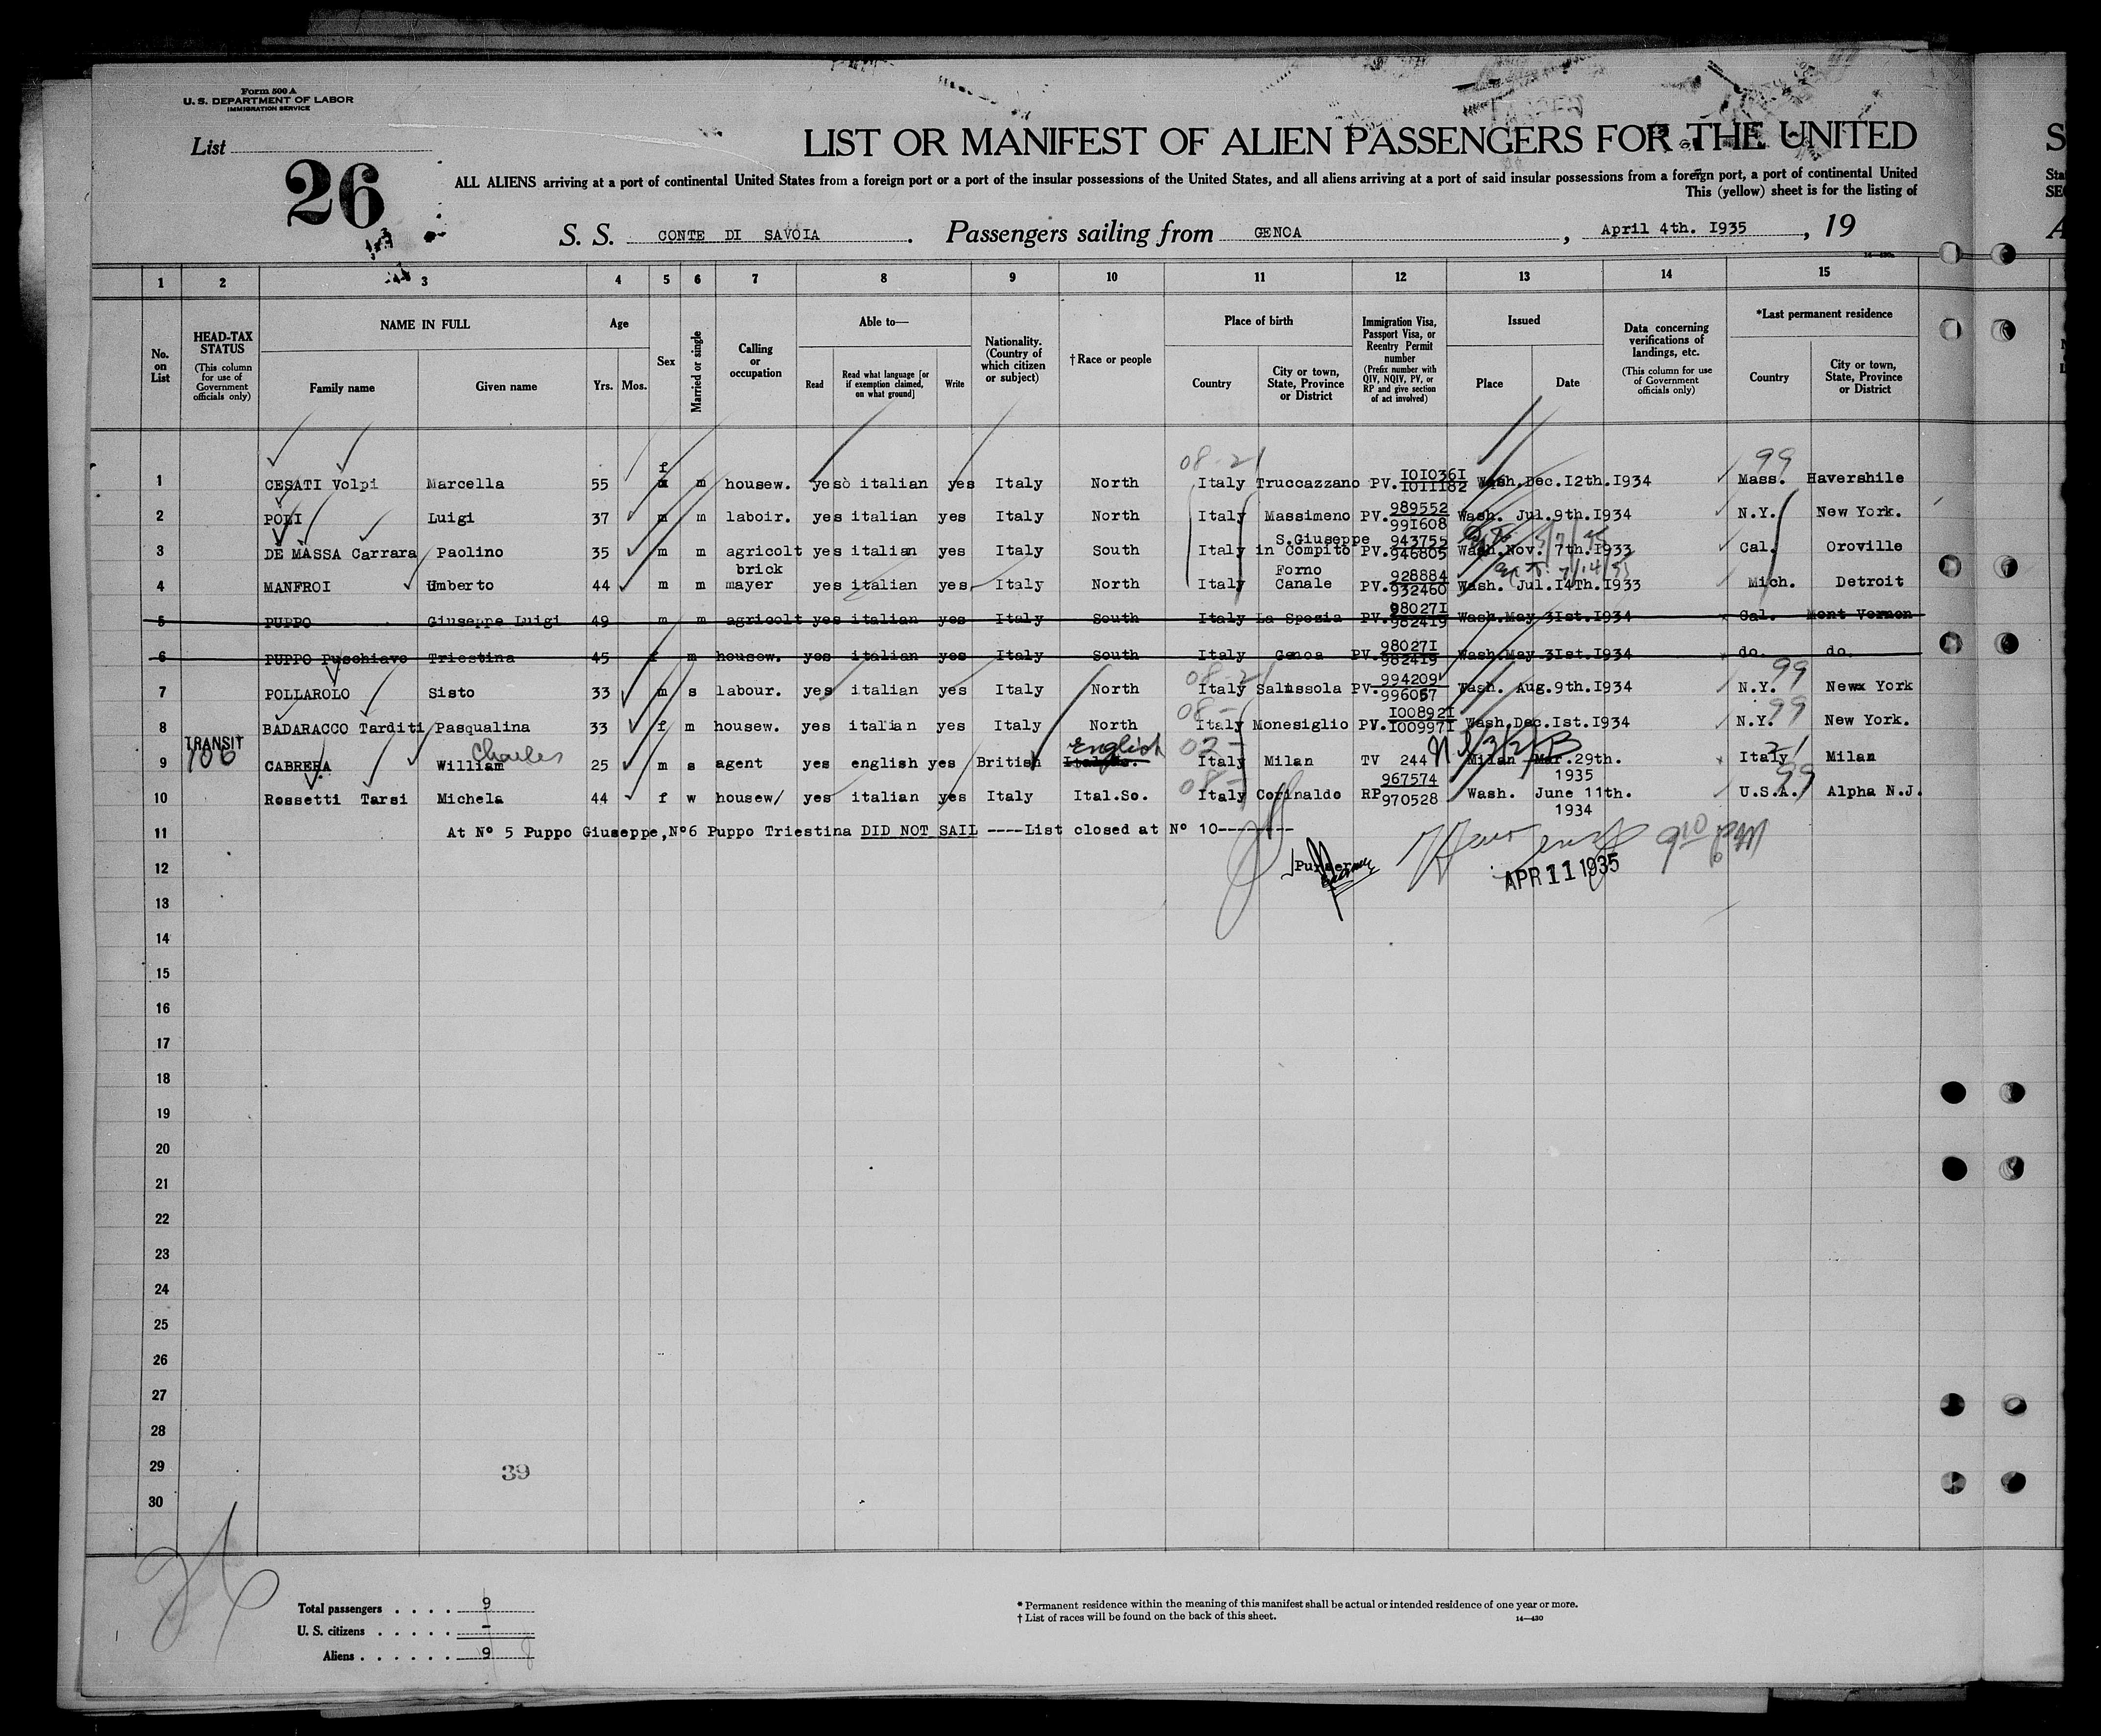 Form 500 A
U. S. DEPARTMENT OF LABOR
IMMIGRATION SERVICE
List
26
LIST OR MANIFEST OF ALIEN PASSENGERS FOR THE UNITED
ALL ALIENS arriving at a port of continental United States from a foreign port or a port of the insular possessions of the United States, and all aliens arriving at a port of said insular possessions from a foreign port, a port of continental United
This (yellow) sheet is for the listing of
S. S. CONTE DI SAVOIA . Passengers sailing from GENOA , April 4th. I935 , 19
14—430a
1 2 3 4 5 6 7 8 9 10 11 12 13 14 15
No. on List
HEAD-TAX STATUS (This column for use of Government officials only)
NAME IN FULL
Family name Given name
Age
Yrs. Mos.
Sex
Married or single
Calling or occupation
Able to—
Read Read what language [or if exemption claimed, on what ground] Write
Nationality. (Country of which citizen or subject)
† Race or people
Place of birth
Country City or town, State, Province or District
Immigration Visa, Passport Visa, or Reentry Permit number (Prefix number with QIV, NQIV, PV, or RP and give section of act involved)
Issued
Place Date
Data concerning verifications of landings, etc. (This column for use of Government officials only)
*Last permanent residence
Country City or town, State, Province or District
08-21 99
1 CESATI Volpi Marcella 55 f m housew. yesò italian yes Italy North Italy Truccazzano PV. I0I036I I0III82 Wash. Dec.I2th.I934 Mass. Havershile
2 POLI Luigi 37 m m laboir. yes italian yes Italy North Italy Massimeno PV. 989552 99I608 Wash. Jul.9th.I934 N.Y. New York.
3 DE MASSA Carrara Paolino 35 m m agricolt yes italian yes Italy South Italy S.Giuseppe in Compito PV. 943755 946805 Wash.Nov. 7th.I933 Cal. Oroville
4 MANFROI Umberto 44 m m brick mayer yes italian yes Italy North Italy Forno Canale PV. 928884 932460 Wash. Jul.I4Th.I933 Mich. Detroit
5 PUPPO Giuseppe Luigi 49 m m agricolt yes italian yes Italy South Italy La Spezia PV. 98027I 982419 Wash.May 3Ist.I934 Cal. Mont Vernon
6 PUPPO Puschiavo Triestina 45 f m housew. yes italian yes Italy South Italy Genoa PV. 98027I 982419 Wash.May 3Ist.I934 do. do.
08-21 99
7 POLLAROLO Sisto 33 m s labour. yes italian yes Italy North Italy Salussola PV. 994209 996067 Wash. Aug.9th.I934 N.Y. Newx York
08- 99
8 BADARACCO Tarditi Pasqualina 33 f m housew. yes italian yes Italy North Italy Monesiglio PV. I00892I I00997I Wash.Dec.Ist.I934 N.Y. New York.
TRANSIT
Charles English 02- 21
9 CABRERA William 25 m s agent yes english yes British Italy Milan TV 244 Milan Mar.29th. 1935 Italy Milan
08- 99
10 Rossetti Tarsi Michela 44 f w housew/ yes italian yes Italy Ital.So. Italy Corinaldo RP 967574 970528 Wash. June 11th. 1934 U.S.A. Alpha N.J.
11 At Nº 5 Puppo Giuseppe,Nº6 Puppo Triestina DID NOT SAIL ----List closed at Nº 10--------
12 Purser
APR 11 1935
9 10 PM
13
14
15
16
17
18
19
20
21
22
23
24
25
26
27
28
29
39
30
Total passengers . . . . 9
U. S. citizens . . . . . –
Aliens . . . . . . 9
* Permanent residence within the meaning of this manifest shall be actual or intended residence of one year or more.
† List of races will be found on the back of this sheet.
14—430